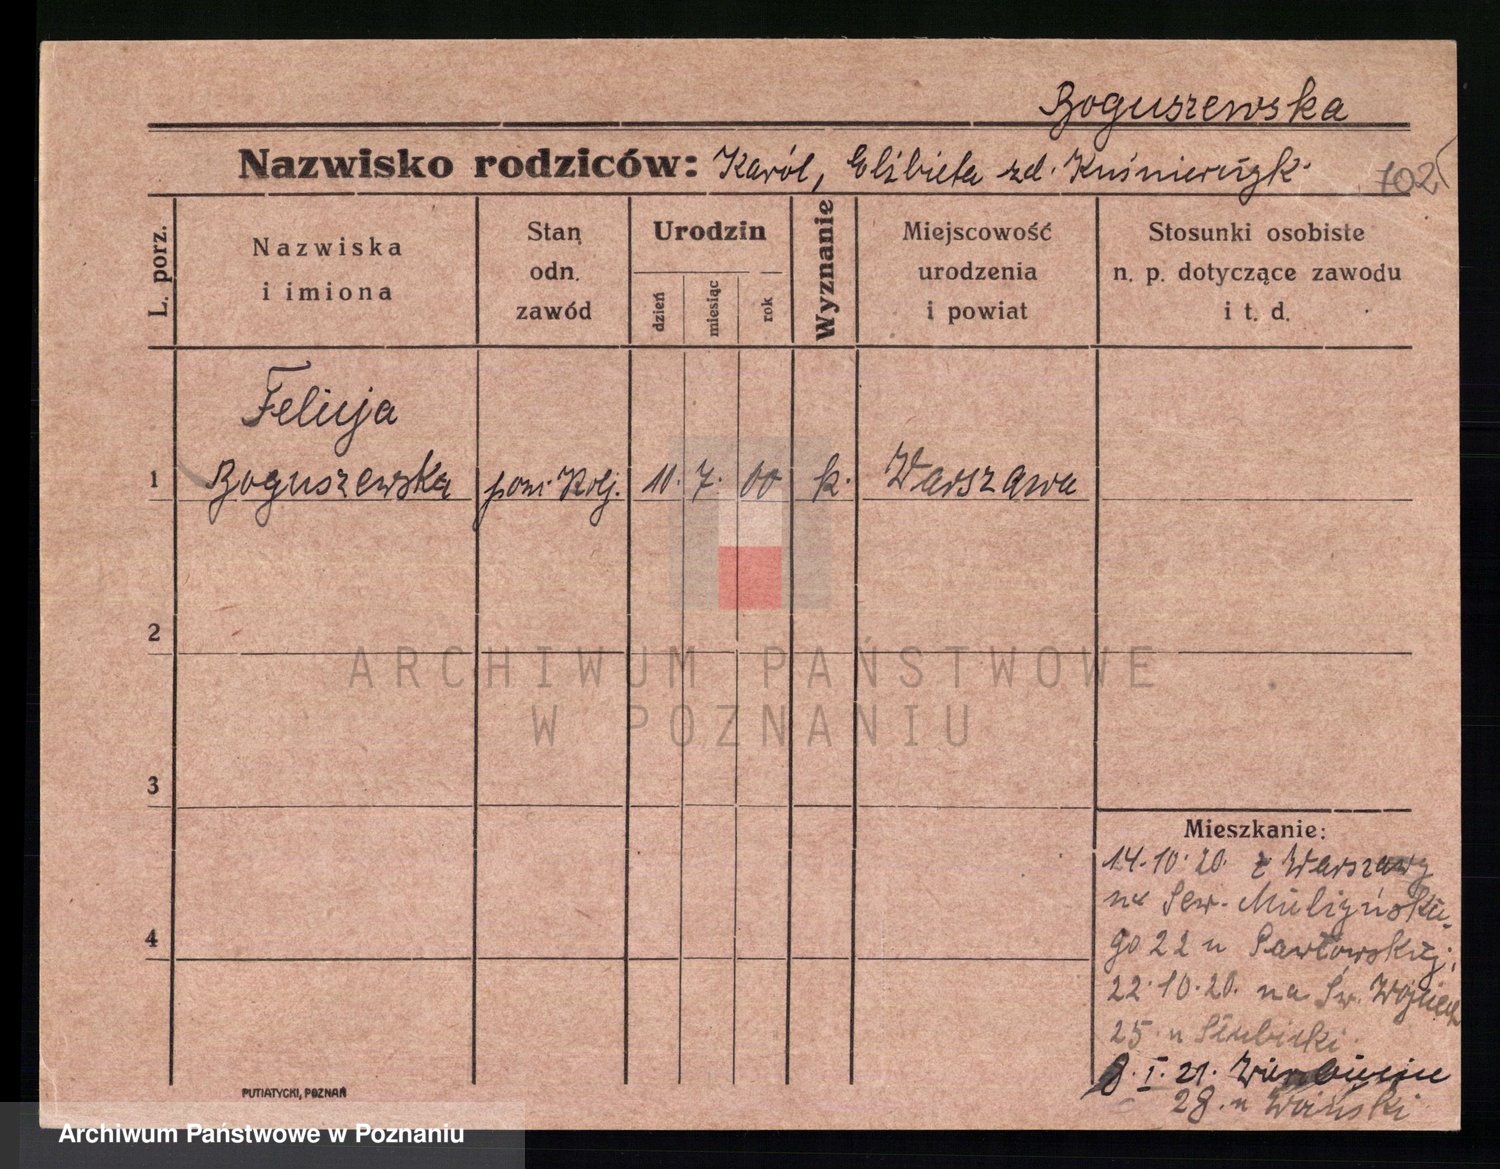 Boguszewska
Nazwisko rodziców: Karól, Elżbieta zd.
702
L. porz.
Nazwiska
i imiona
Stan
odn.
zawód
Urodzin
dzień
miesiąc
rok
Wyznanie
Miejscowość
urodzenia
i powiat
Stosunki osobiste
n. p. dotyczące zawodu
i t. d.
Felicja
1 Boguszewska 7. 00 k. Warszawa
2
3
4
ARCHIWUM PAŃSTWOWE
W POZNANIU
Mieszkanie:
14.10.20. z Warszawy
na
go 22 u Pawłowskiej;
22.10.20. na Św. Wojciech
25 u
8.I.21.
28. u
PUTIATYCKI, POZNAŃ
Archiwum Państwowe w Poznaniu